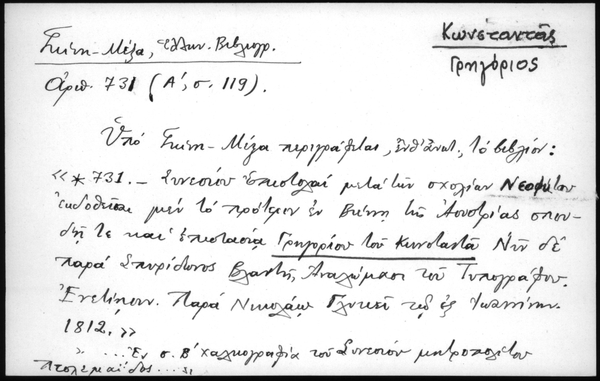 Κωνσταντᾶς
Γρηγόριος
Γκίνη-Μέξα, Ἑλλην. Βιβλιογρ.
Ἀριθ. 731 (Α', σ. 119).
Ὑπό Γκίνη-Μέξα περιγράφεται, ἐνθ' ἀνωτ., τό βιβλίον:
«*731.— Συνεσίου Ἐπιστολαί μετά τῶν σχολίων Νεοφύτου
ἐκδοθεῖσαι μέν τό πρότερον ἐν Βιέννῃ τῆς Αουστρίας σπου-
δῇ τε καί ἐπιστασίᾳ Γρηγορίου τοῦ Κωνσταντᾶ Νῦν δέ
παρά Σπυρίδωνος Βλαντῆ, Ἀναλώμασι τοῦ Τυπογράφου.
Ἐνετίησιν. Παρά Νικολάῳ Γλυκεῖ τῷ ἐξ Ἰωαννίνων.
1812.»
» ...Ἐν σ. Β' χαλκογραφία τοῦ Συνεσίου μητροπολίτου
Πτολεμαΐδος...»